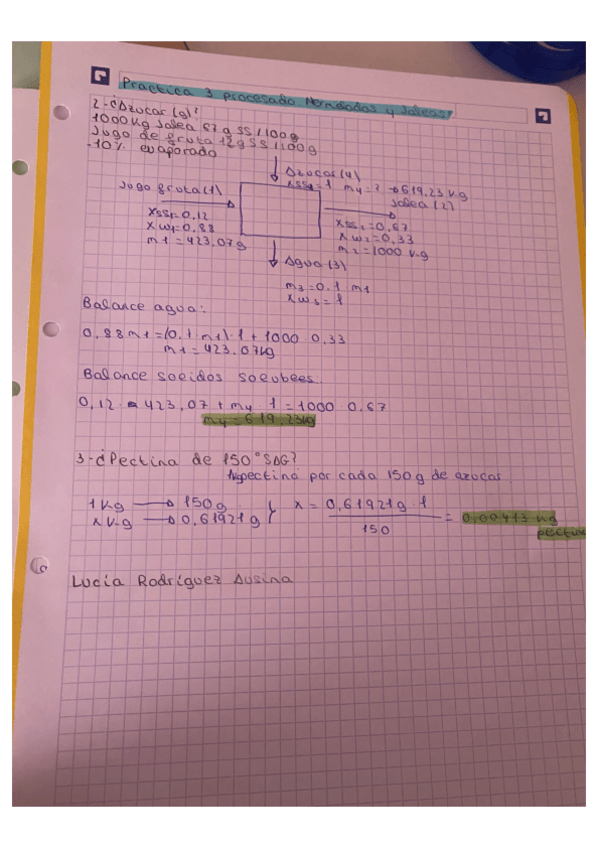 Practica 3 procesado Mermeladas y Jaleas
2-¿Azucar (g)?
1000 Kg Jalea 67 g SS / 100g
Jugo de fruta 12g SS / 100g
-10% evaporado
Azucar (4)
xss4=1 m4=? → 619,23 kg
Jugo fruta (1)
Jalea (2)
xss1=0,12
xw1=0,88
m1=423,07g
xss2=0,67
xw2=0,33
m2=1000 kg
Agua (3)
m3=0,1 m1
xw3=1
Balance agua:
0,88m1=(0,1 m1)·1+1000·0,33
m1=423,07kg
Balance solidos solubles
0,12 · 423,07 + m4 · 1 = 1000 · 0,67
m4=619,23kg
3-¿Pectina de 150° SAG?
1kg pectina por cada 150 g de azucar
1 kg → 150g
x kg → 0,61921g } x = 0,61921g · 1 / 150 = 0,00413 kg
pectina
Lucia Rodríguez Ausina